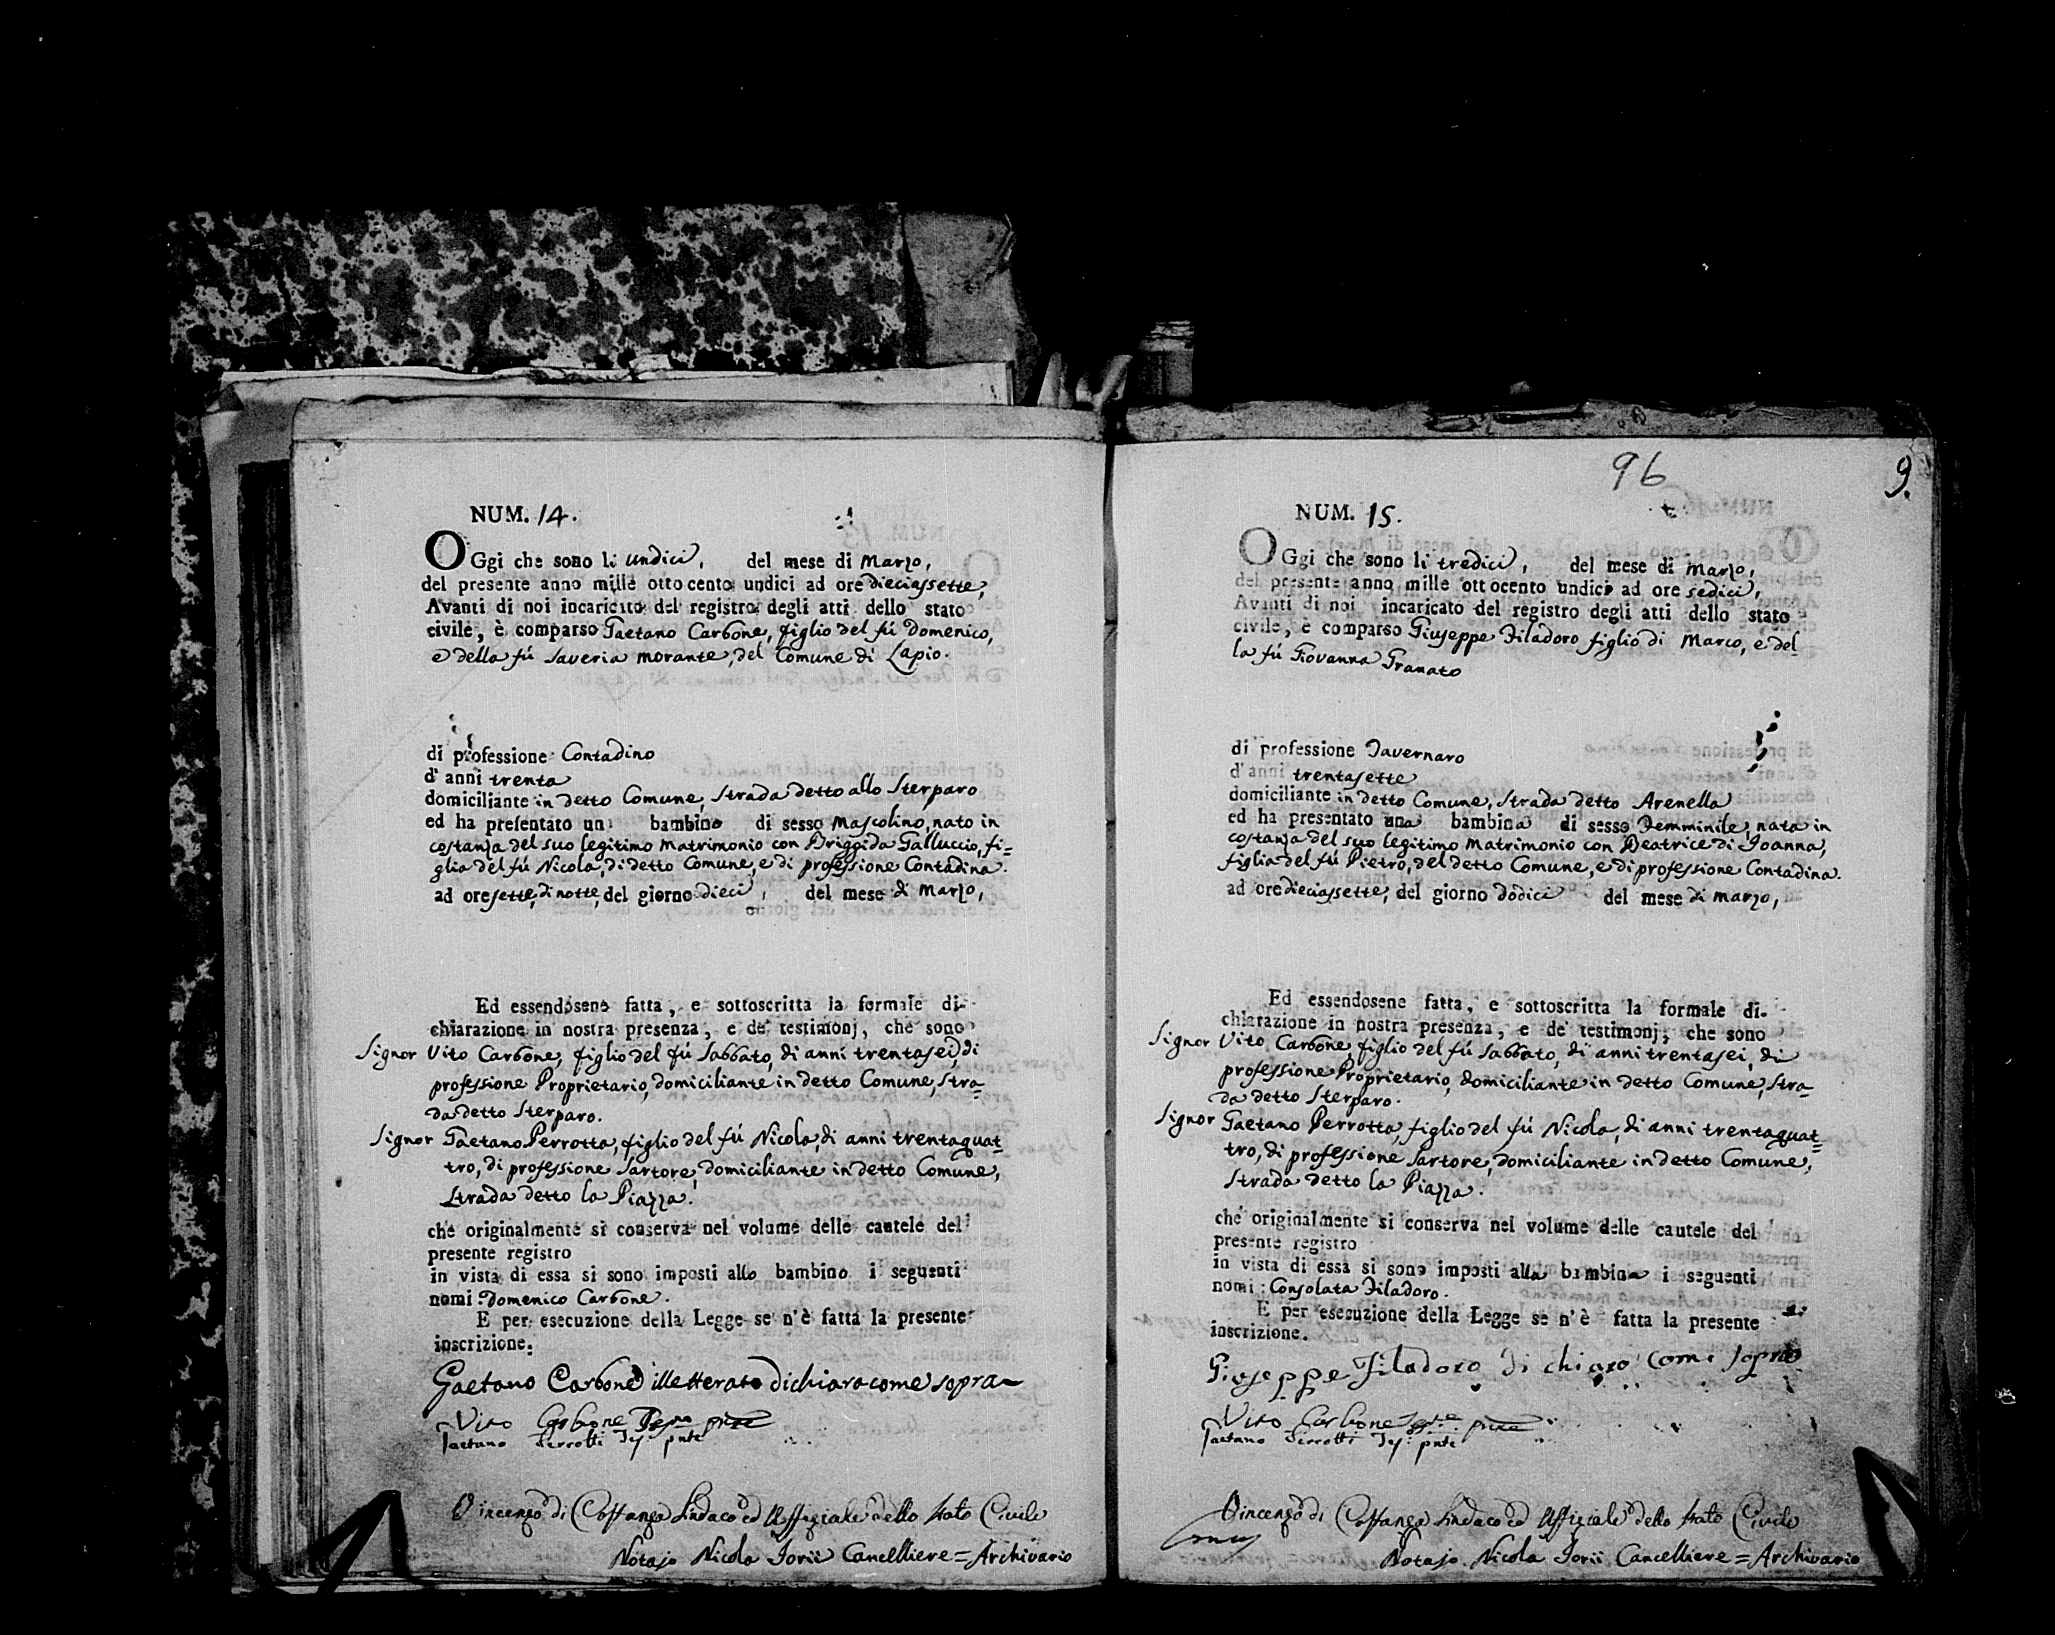 NUM. 14.
OGgi che sono li undici, del mese di Marzo,
del presente anno mille ottocento undici ad ore dieciassette,
Avanti di noi incaricato del registro degli atti dello stato
civile, è comparso Gaetano Carbone, figlio del fú Domenico,
e della fú Saveria Morante, del Comune di Lapio.
di professione Contadino
d'anni trenta
domiciliante in detto Comune, Strada detto allo Sterparo
ed ha presentato un bambino di sesso Mascolino, nato in
costanza del suo legitimo Matrimonio con Briggida Galluccio, fi=
glia del fú Nicola, di detto Comune, e di professione Contadina.
ad ore sette, di notte, del giorno dieci, del mese di Marzo,
Ed essendosene fatta, e sottoscritta la formale di-
chiarazione in nostra presenza, e de' testimonj, che sono
Signor Vito Carbone, figlio del fú Sabbato, di anni trentasei, di
professione Proprietario, domiciliante in detto Comune, Stra-
da detto Sterparo.
Signor Gaetano Perrotta, figlio del fú Nicola, di anni trentaquat=
tro, di professione Sartore, domiciliante in detto Comune,
Strada detto la Piazza.
che originalmente si conserva nel volume delle cautele del
presente registro
in vista di essa si sono imposti allo bambino i seguenti
nomi: Domenico Carbone.
E per esecuzione della Legge se n'è fatta la presente
inscrizione.
Gaetano Carbone illetterato dichiara come sopra
Vito Carbone
Gaetano Perrotti Tes. pnte
Vincenzo di Costanzo Sindaco ed Uffiziale dello Stato Civile
Notajo Nicola Iorii Cancelliere = Archivario
96
9.
NUM. 15.
OGgi che sono li tredici, del mese di Marzo,
del presente anno mille ottocento undici ad ore sedici,
Avanti di noi incaricato del registro degli atti dello stato
civile, è comparso Giuseppe Filadoro figlio di Marco, e del-
la fú Giovanna Granato
di professione Tavernaro
d'anni trentasette
domiciliante in detto Comune, Strada detto Arenella
ed ha presentato una bambina di sesso Femminile, nata in
costanza del suo legitimo Matrimonio con Beatrice di Ioanna,
figlia del fú Pietro, del detto Comune, e di professione Contadina.
ad ore dieciassette, del giorno dodici del mese di Marzo,
Ed essendosene fatta, e sottoscritta la formale di-
chiarazione in nostra presenza, e de' testimonj, che sono
Signor Vito Carbone, figlio del fú Sabbato, di anni trentasei, di
professione Proprietario, domiciliante in detto Comune, Stra-
da detto Sterparo.
Signor Gaetano Perrotta, figlio del fú Nicola, di anni trentaquat=
tro, di professione Sartore, domiciliante in detto Comune,
Strada detto la Piazza.
che originalmente si conserva nel volume delle cautele del
presente registro
in vista di essa si sono imposti alla bambina i seguenti
nomi: Consolata Filadoro.
E per esecuzione della Legge se n'è fatta la presente
inscrizione.
Giuseppe Filadoro di chiaro come sopra
Vito Carbone
Gaetano Perrotti Tes. pnte
Vincenzo di Costanzo Sindaco ed Uffiziale dello Stato Civile
Notajo Nicola Iorii Cancelliere = Archivario